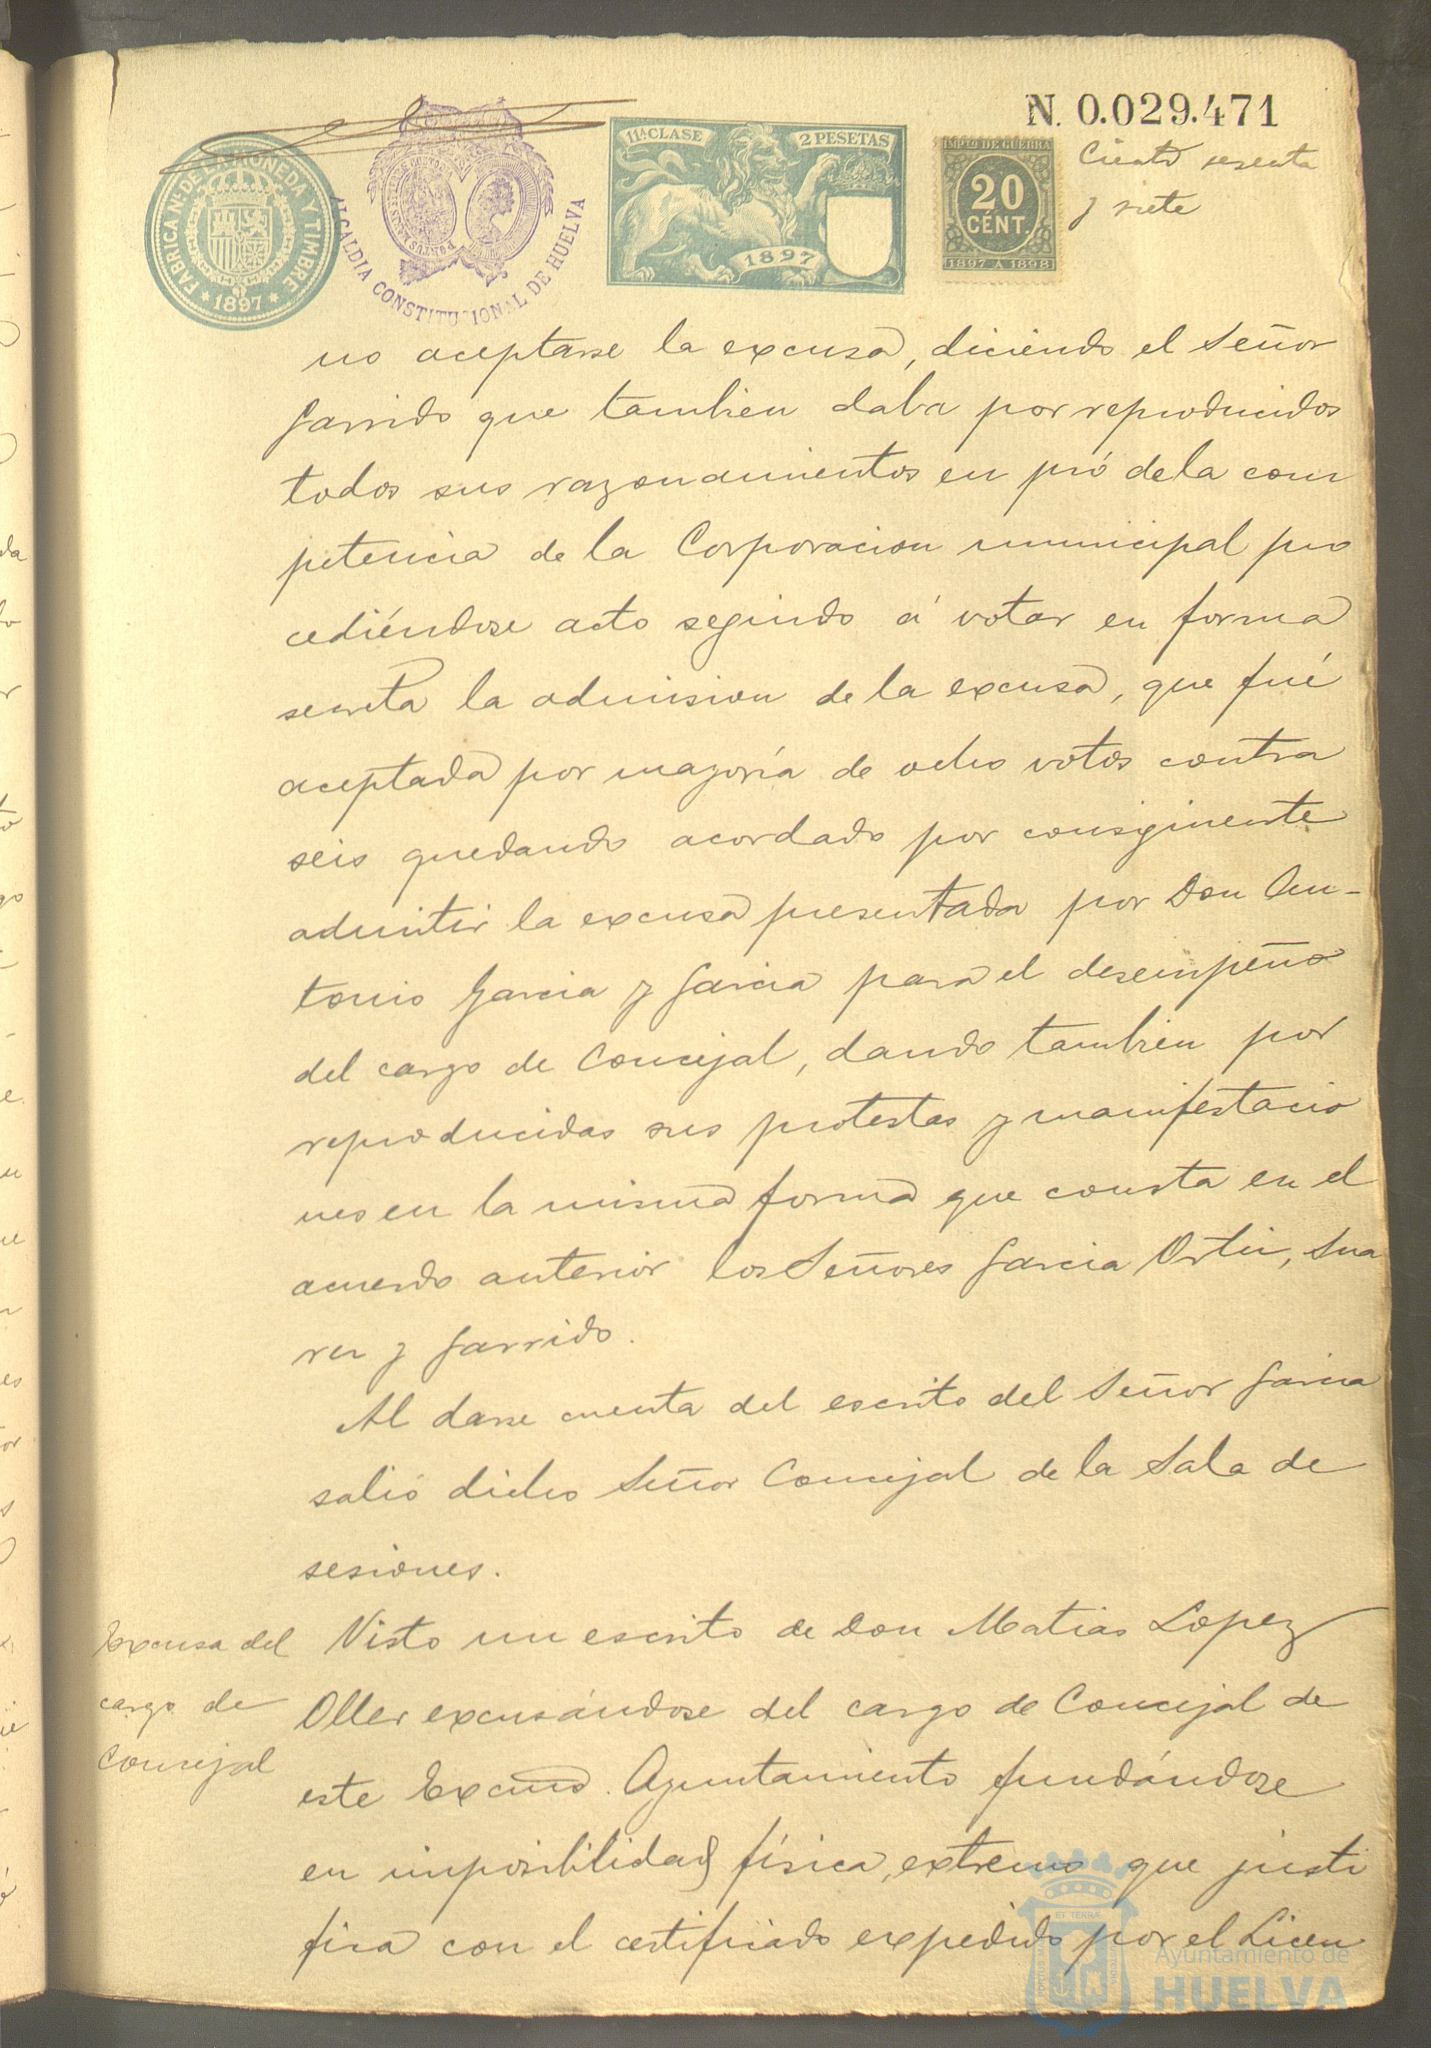 N. 0.029.471
Ciento sesenta
y siete
FABRICA NL. DE LA MONEDA Y TIMBRE
* 1897 *
ALCALDIA CONSTITUCIONAL DE HUELVA
11ª CLASE 2 PESETAS
1897
IMPTO DE GUERRA
20
CÉNT.
1897 A 1898
no aceptarse la excusa, diciendo el Señor
Garrido que tambien daba por reproducidos
todos sus razonamientos en pró de la com
petencia de la Corporacion municipal pro
cediéndose acto seguido á votar en forma
secreta la admision de la excusa, que fué
aceptada por mayoría de ocho votos contra
seis quedando acordado por consiguiente
admitir la excusa presentada por Don An-
tonio Garcia y Garcia para el desempeño
del cargo de Concejal, dando tambien por
reproducidas sus protestas y manifestacio
nes en la misma forma que consta en el
acuerdo anterior los Señores Garcia Ortiz, Sua
rez y Garrido.
Al darse cuenta del escrito del Señor Garcia
salió dicho Señor Concejal de la Sala de
sesiones.
Excusa del
cargo de
Concejal
Visto un escrito de Don Matias Lopez
Oller excusándose del cargo de Concejal de
este Excmo. Ayuntamiento fundándose
en imposibilidad física, extremo que justi
fica con el certificado expedido por el Licen
Ayuntamiento de
HUELVA